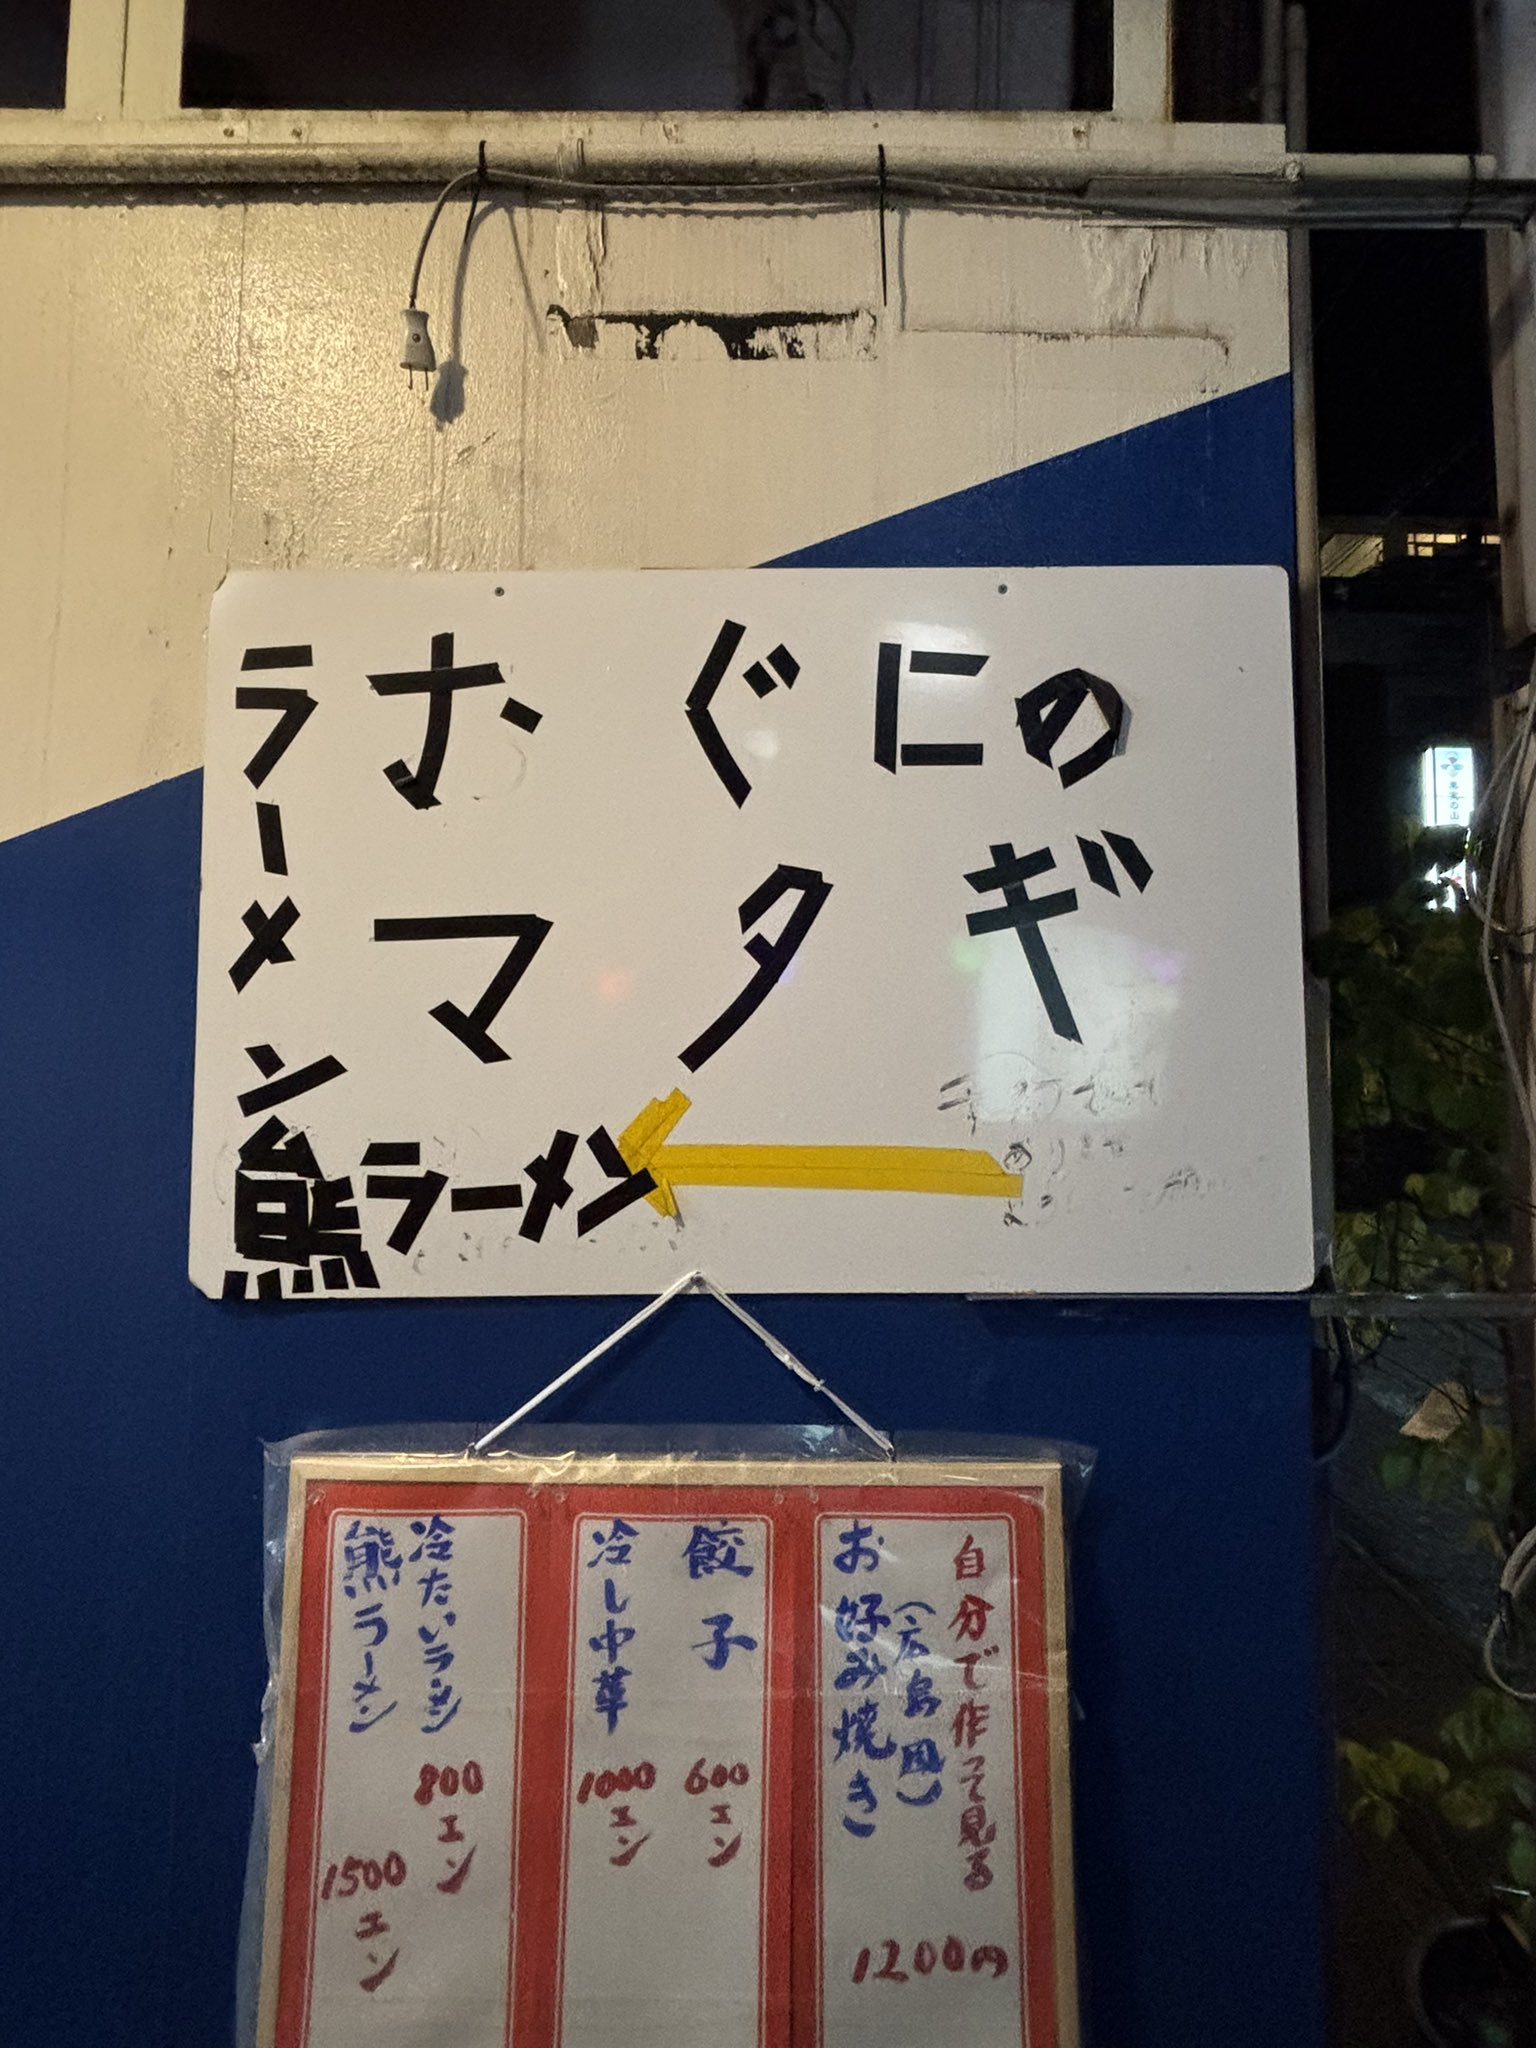 おぐにの
マタギ
ラーメン
熊ラーメン
自分で作って見る
(広島風)
お好み焼き
1200円
餃子
600エン
冷し中華
1000エン
冷たいラーメン
800エン
熊ラーメン
1500エン